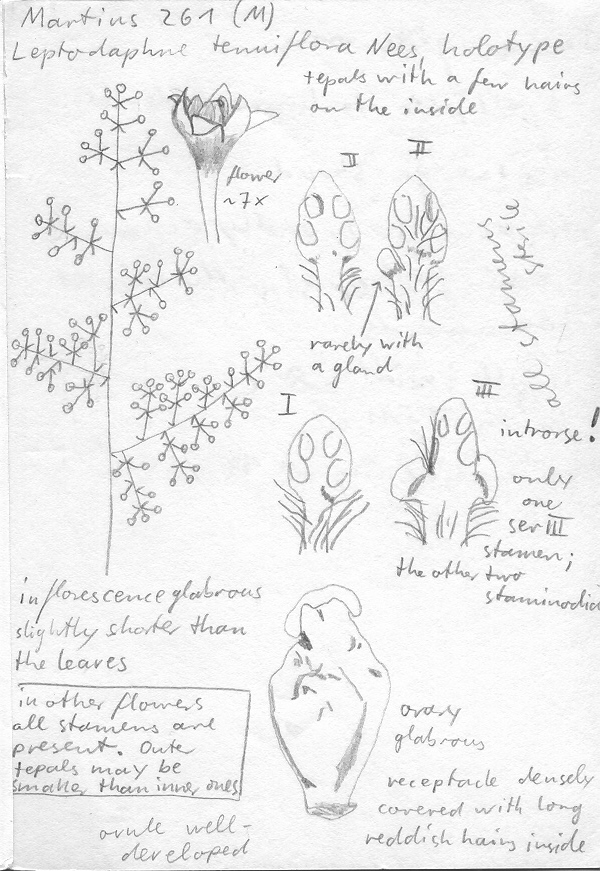 Martius 261 (M)
Leptodaphne tenuiflora Nees, holotype
tepals with a few hairs
on the inside
flower
~7x
II
II
rarely with
a gland
all stamens
sterile
I
III
introrse!
only
one
ser III
stamen;
the other two
staminodia
inflorescence glabrous
slightly shorter than
the leaves
in other flowers
all stamens are
present. Outer
tepals may be
smaller than inner ones
ovary
glabrous
receptacle densely
covered with long
reddish hairs inside
ovule well-
developed